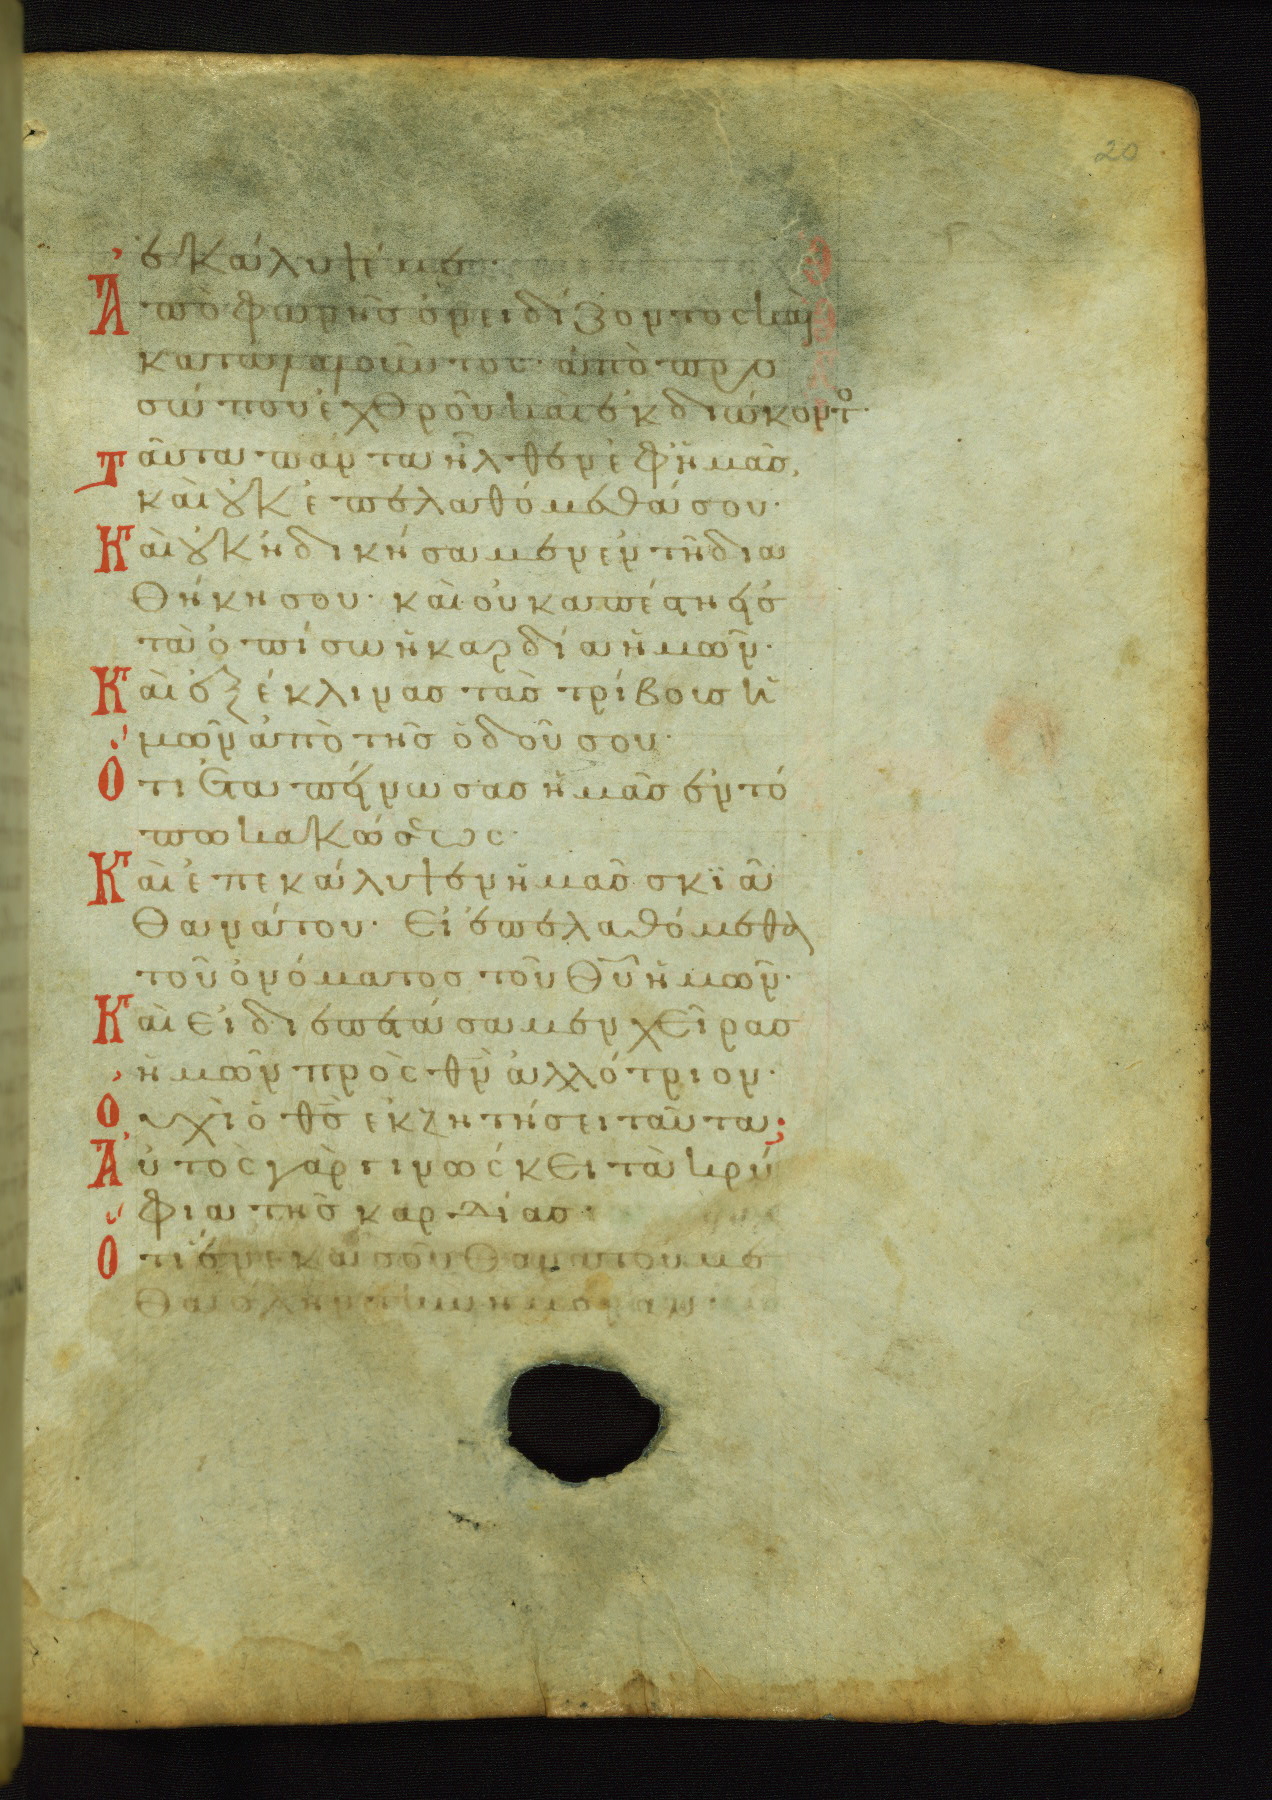 20
ἐκάλυψέ με·
Ἀπὸ φωνῆς ὀνειδίζοντος καὶ
καταλαλοῦντος· ἀπὸ προ
σώπου ἐχθροῦ καὶ ἐκδιώκοντο·
Ταῦτα πάντα ἦλθεν ἐφ ἡμᾶς,
καὶ οὐκ ἐπελαθόμεθά σου·
Καὶ οὐκ ἠδικήσαμεν ἐν τῇ δια
θήκῃ σου· καὶ οὐκ ἀπέστη εἰς
τὰ ὀπίσω ἡ καρδία ἡμῶν·
Καὶ ἐξέκλινας τὰς τρίβους ἡ
μῶν ἀπὸ τῆς ὁδοῦ σου·
Ὅτι ἐταπείνωσας ἡμᾶς ἐν τό
πω κακώσεως·
Καὶ ἐπεκάλυψεν ἡμᾶς σκϊὰ
θανάτου· Εἰ ἐπελαθόμεθα
τοῦ ὀνόματος τοῦ θῦ ἡμῶν·
Καὶ εἰ διεπετάσαμεν χεῖρας
ἡμῶν πρὸς θν ἀλλότριον·
Οὐχὶ ὁ θς ἐκζητήσει ταῦτα;
Αὐτὸς γὰρ γινώσκει τὰ κρύ
φια τῆς καρδίας·
Ὅτι ἕνεκα σοῦ θανατούμε
θα ὅλην τὴν ἡμέραν·